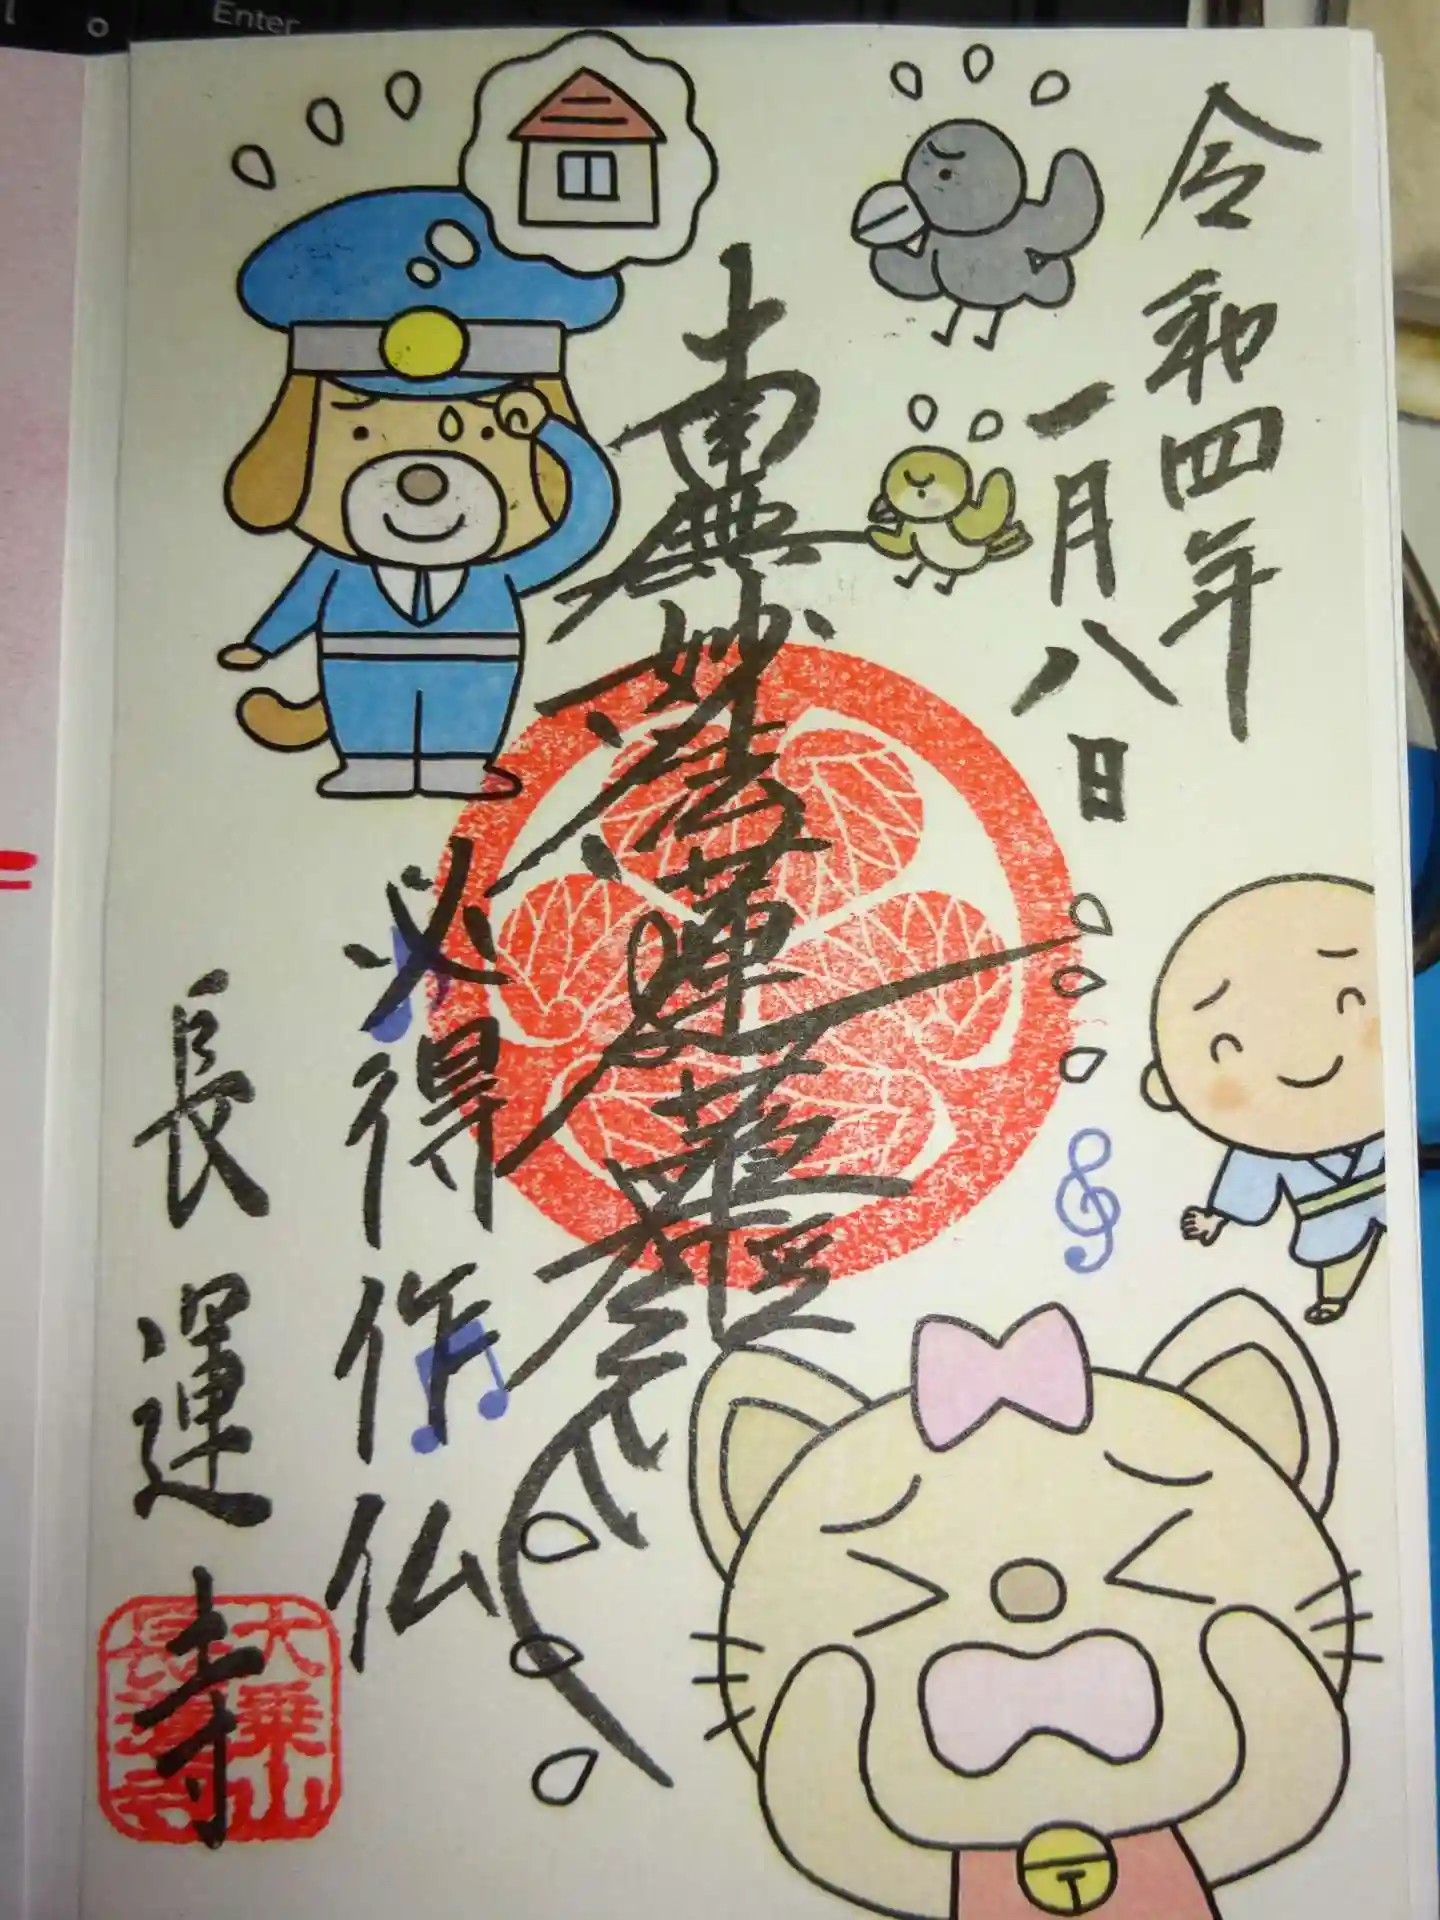 Enter
令和四年
一月八日
南無妙法蓮華経
必得作仏
長運寺
大乗山
長運寺